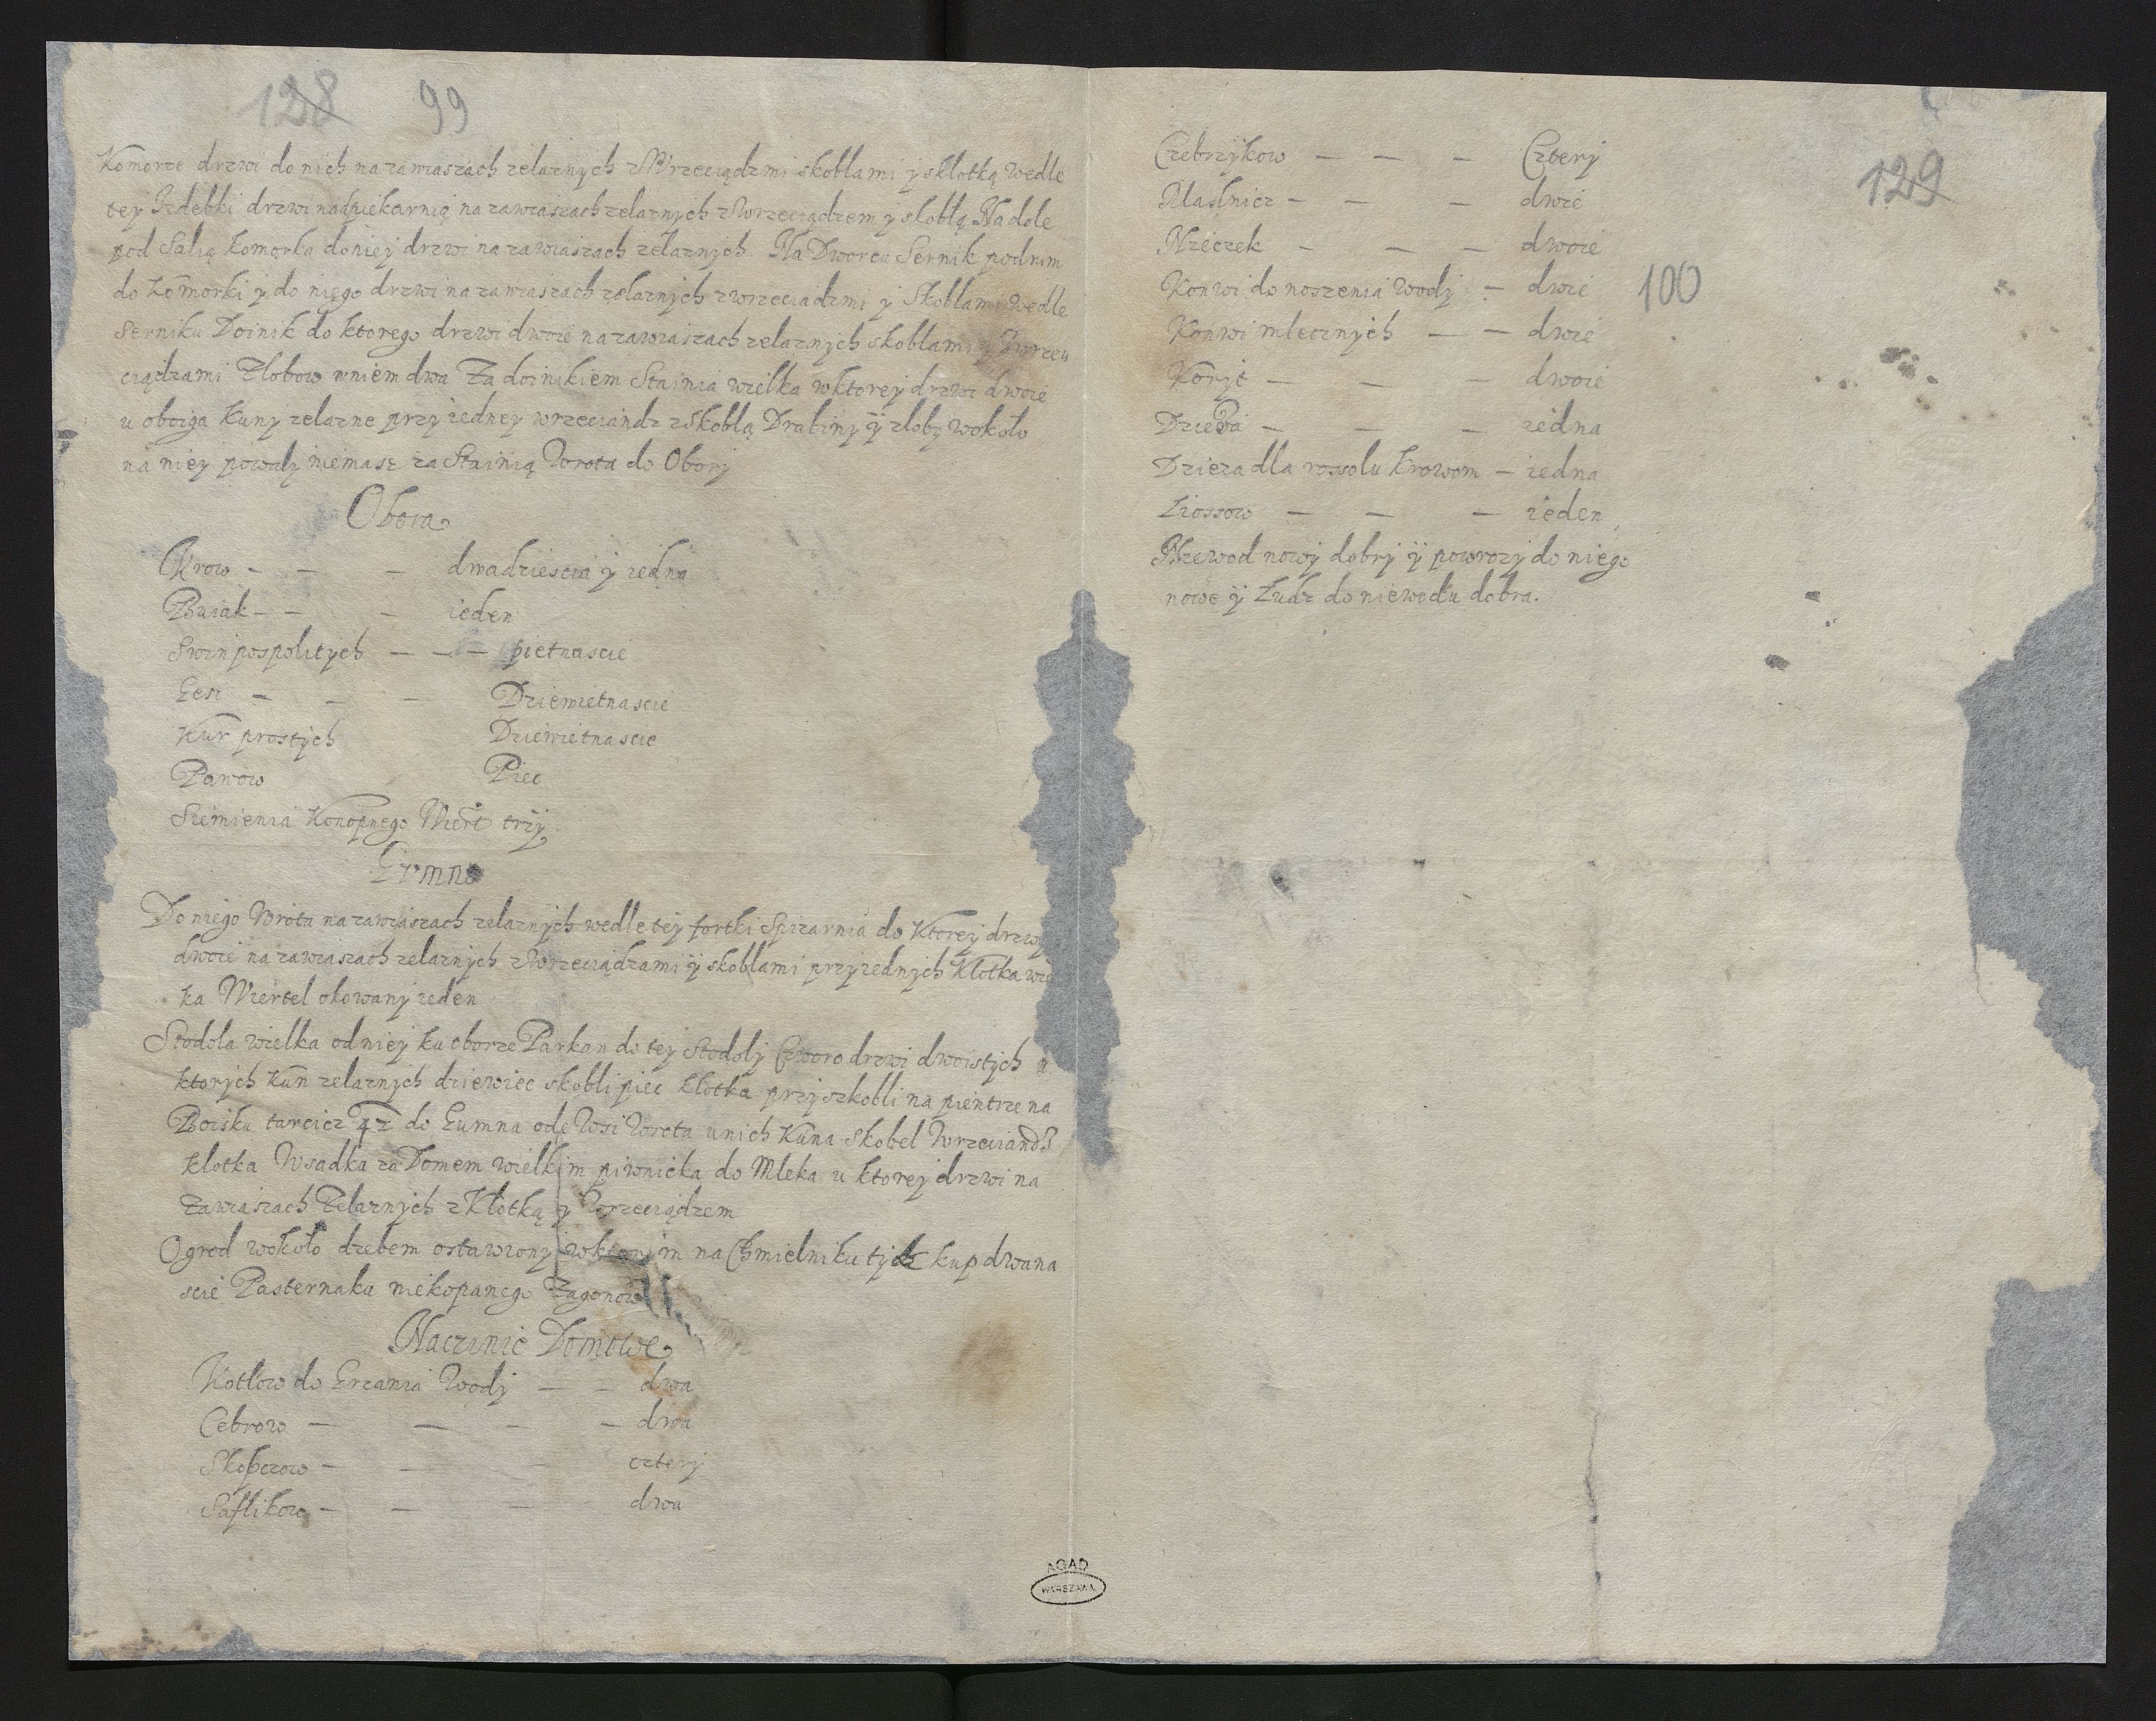 128 99
Komorze drzwi do nich na zawiaszach zelaznych z Wrzeciądzmi skoblami y sklotką Wedle
tey Izdebki drzwi nad piekarnią na zawiaszach zelaznych z Wrzeciądzem y skoblą Na dole
pod Salią Komorka do niey drzwi na zawiaszach zelaznych Na Dworcu Sernik pod nim
do Komorki y do niego drzwi na zawiaszach zelaznych z wrzeciadzmi y Skoblami wedle
Serniku Doinik do ktorego drzwi dwoie na zawiaszach zelaznych skoblami y Zwrze
ciądzami Złobow w niem dwa Za doinikiem Stainia wielka w ktorey drzwi dwoie
u oboiga Kuny zelazne przy iedney wrzeciandz z Skoblą Drabiny ÿ zloby wokoło
na niey powaly niemasz za Stainią Wrota do Obory
Obora
Krow — — — dwadziescia y iedna
Buiak — — — ieden
Swin pospolitych — — — pietnascie
Gesi — — — Dziewietnascie
Kur prostych Dziewietnascie
Pawow Piec
Siemienia Konopnego Wiert trzy
Gumno
Do niego Wrota na zawiaszach zelaznych wedle tey fortki Spizarnia do Ktorey drzwi
dwoie na zawiaszach zelaznych z Wrzeciądzami ÿ skoblami przy iednych Klotka wie
ka Wiertel okowany ieden
Stodola wielka od niey ku oborze Parkan do tey Stodoly Czworo drzwi dwoistych u
ktorych Kun zelaznych dziewiec skobli piec klotka przy szkobli na pientrze na
Boisku tarcicz 42 do Gumna ode Wsi Wrota u nich Kuna Skobel Wrzeciandz
klotka Wsadka za Domem wielkim piwnicka do Mleka u ktorey drzwi na
Zawiaszach Zelaznych z Klotką y Wrzeciądzem
Ogrod wokoło dzebem ostawiony w ktorym na Chmielniku tych kup dwana
scie Pasternaku niekopanego Zagonow
Naczinie Domowe
Kotlow do Grzania Wody — — dwa
Cebrow — — — — dwa
Skopczow — — — cztery
Saflikow — — — dwa
AGAD
WARSZAWA
129
Czebrzykow — — — Cztery
Maslnicz — — — dwie
Nieczek — — — dwoie
Konwi do noszenia Wody — dwie 100
Konwi mlecznych — — dwie
Koryt — — — dwoie
Dzieza — — — iedna
Dzieza dla rossolu Krowom — iedna
— — — ieden
Niewod nowy dobry ÿ powrozy do niego
nowe ÿ Łudz do niewodu dobra.